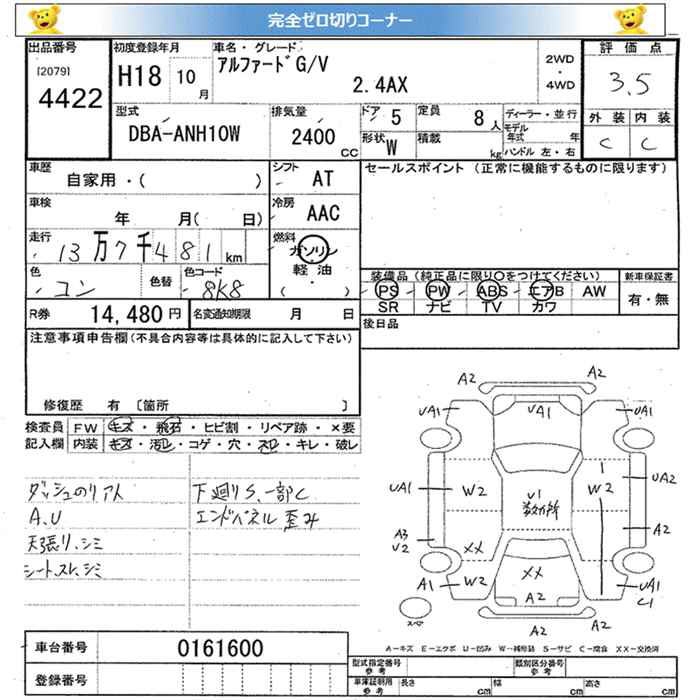 完全ゼロ切りコーナー
出品番号 [2079] 4422
初度登録年月 H18 10月
車名・グレード アルファードG/V 2.4AX
2WD・4WD
評価点 3.5
型式 DBA-ANH10W
排気量 2400 CC
ドア 5
定員 8人
形状 W
積載 kg
ディーラー・並行
モデル年式 年
ハンドル 左・右
外装 内装
C C
車歴 自家用・( )
シフト AT
セールスポイント (正常に機能するものに限ります)
車検 年 月( 日)
冷房 AAC
走行 13万7千481km
燃料 ガソリン 軽油 ( ・ )
色 コン
色替
色コード 8K8
装備品 (純正品に限り○をつけてください)
新車保証書
PS PW ABS エアB AW
SR ナビ TV カワ
有・無
R券 14,480円
名変通知期限 月 日
後日品
注意事項申告欄(不具合内容等は具体的に記入して下さい)
修復歴 有 〔箇所 〕
検査員記入欄
FW キズ・飛石・ヒビ割・リペア跡・×要
内装 キズ・汚レ・コゲ・穴・スレ・キレ・破レ
下廻りS、一部C
A.U エンドパネル 歪み
天張り、シミ
シートスレ、シミ
A2
A2
UA1 UA1 UA1
UA1 W2 U1 W2 UA2
A3 U2 A2
XX XX
A1 W2 A2 UA1 C1
スペア A2 A2
A-キズ E-エクボ U-凹み W-補修跡 S-サビ C-腐食 XX-交換済
車台番号 0161600
登録番号
型式指定番号 参考
類別区分番号 参考
車庫証明用 参考 長さ cm 幅 cm 高さ cm